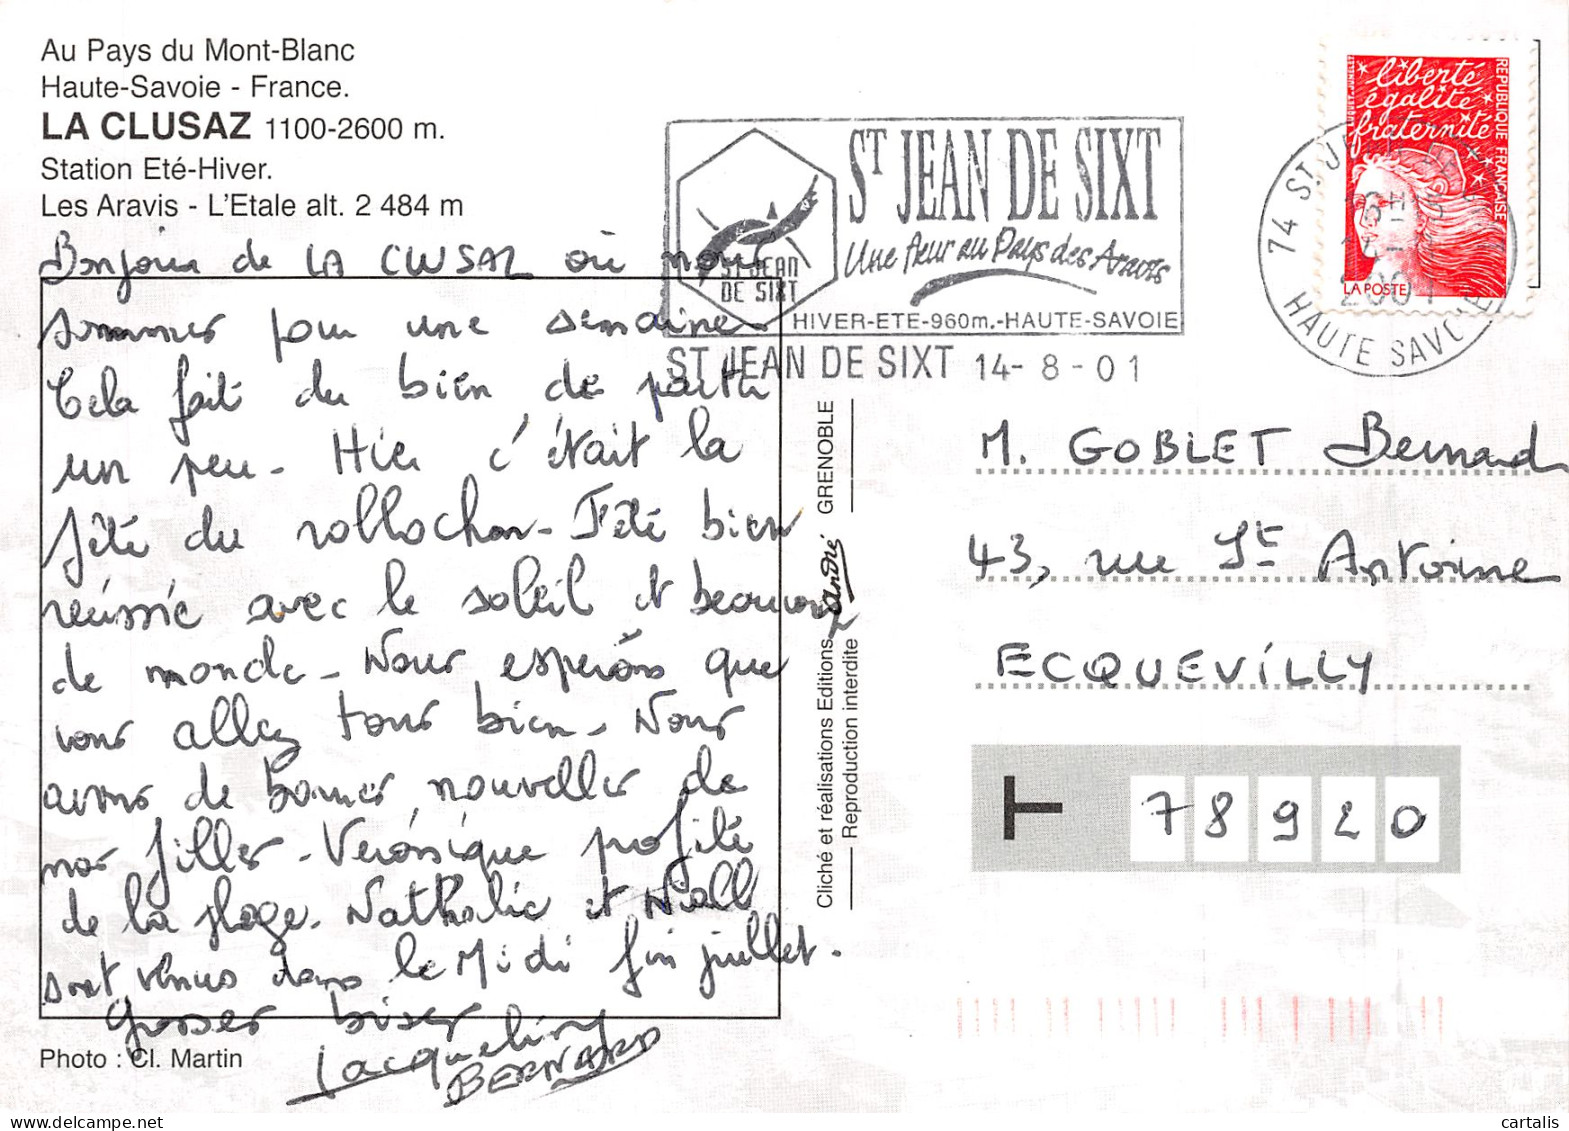 Au Pays du Mont-Blanc
Haute-Savoie - France.
LA CLUSAZ 1100-2600 m.
Station Eté-Hiver.
Les Aravis - L'Etale alt. 2 484 m
Bonjour de LA CLUSAZ où nous
sommes pour une semaine
Cela fait du bien de partir
un peu - Hier c'était la
fête du rollochon - Fête bien
réussie avec le soleil et beaucoup
de monde - Nous espérons que
vous allez tous bien - Nous
avons de bonnes nouvelles de
nos filles - Véronique profite
de la plage. Nathalie et Niall
sont venus dans le Midi fin juillet.
grosses bises
Jacqueline
BERNARD
Photo : Cl. Martin
ST JEAN DE SIXT
Une fleur au Pays des Aravis
ST JEAN
DE SIXT
HIVER-ETE-960m.-HAUTE-SAVOIE
ST JEAN DE SIXT 14-8-01
liberté
égalité
fraternité
REPUBLIQUE FRANÇAISE
LA POSTE
74 ST. JEAN
2001
HAUTE SAVOIE
Cliché et réalisations Editions André GRENOBLE
Reproduction interdite
M. GOBLET Bernard
43, rue St Antoine
ECQUEVILLY
T 78920
cartalis